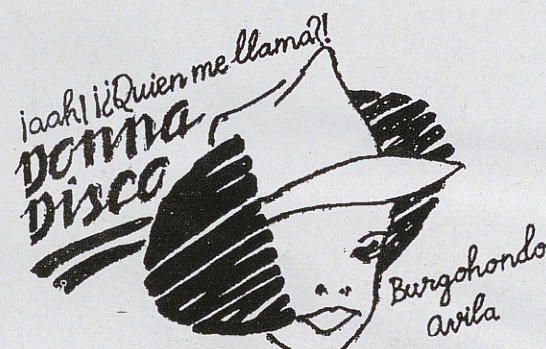 ¡aah! ¡¿Quien me llama?!
Donna
Disco
Burgohondo
avila